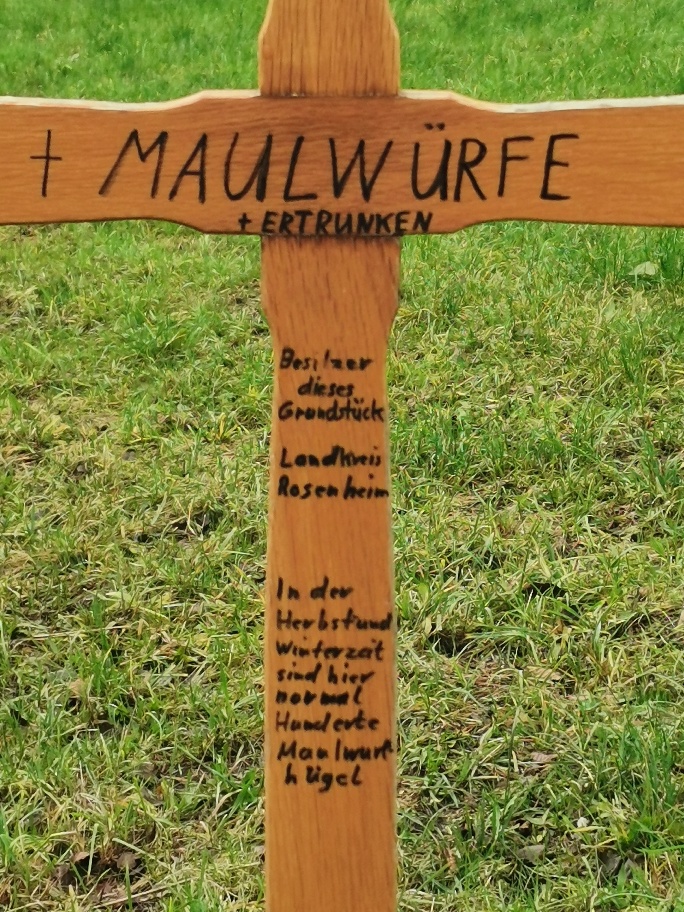 † MAULWÜRFE
† ERTRUNKEN
Besitzer
dieses
Grundstück
Landkreis
Rosenheim
In der
Herbst und
Winterzeit
sind hier
normal
Hunderte
Maulwurf
hügel